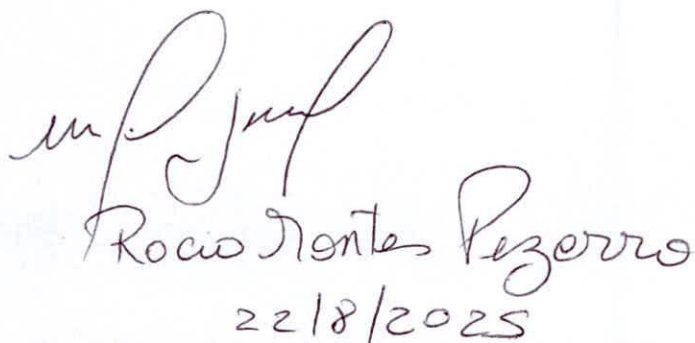 Rocio Montes Pizarro
22/8/2025